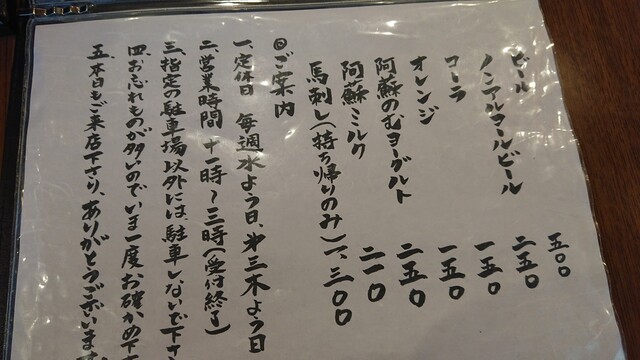 ビール 五〇〇
ノンアルコールビール 二五〇
コーラ 一五〇
オレンジ 一五〇
阿蘇のむヨーグルト 二五〇
阿蘇ミルク 二一〇
馬刺し(持ち帰りのみ)一、三〇〇
◎ご案内
一、定休日 毎週水よう日、第三木よう日
二、営業時間 十一時〜三時(受付終了)
三、指定の駐車場以外には、駐車しないで下さ
四、お忘れものが多いので、いま一度お確かめ下
五、本日もご来店下さり、ありがとうございます